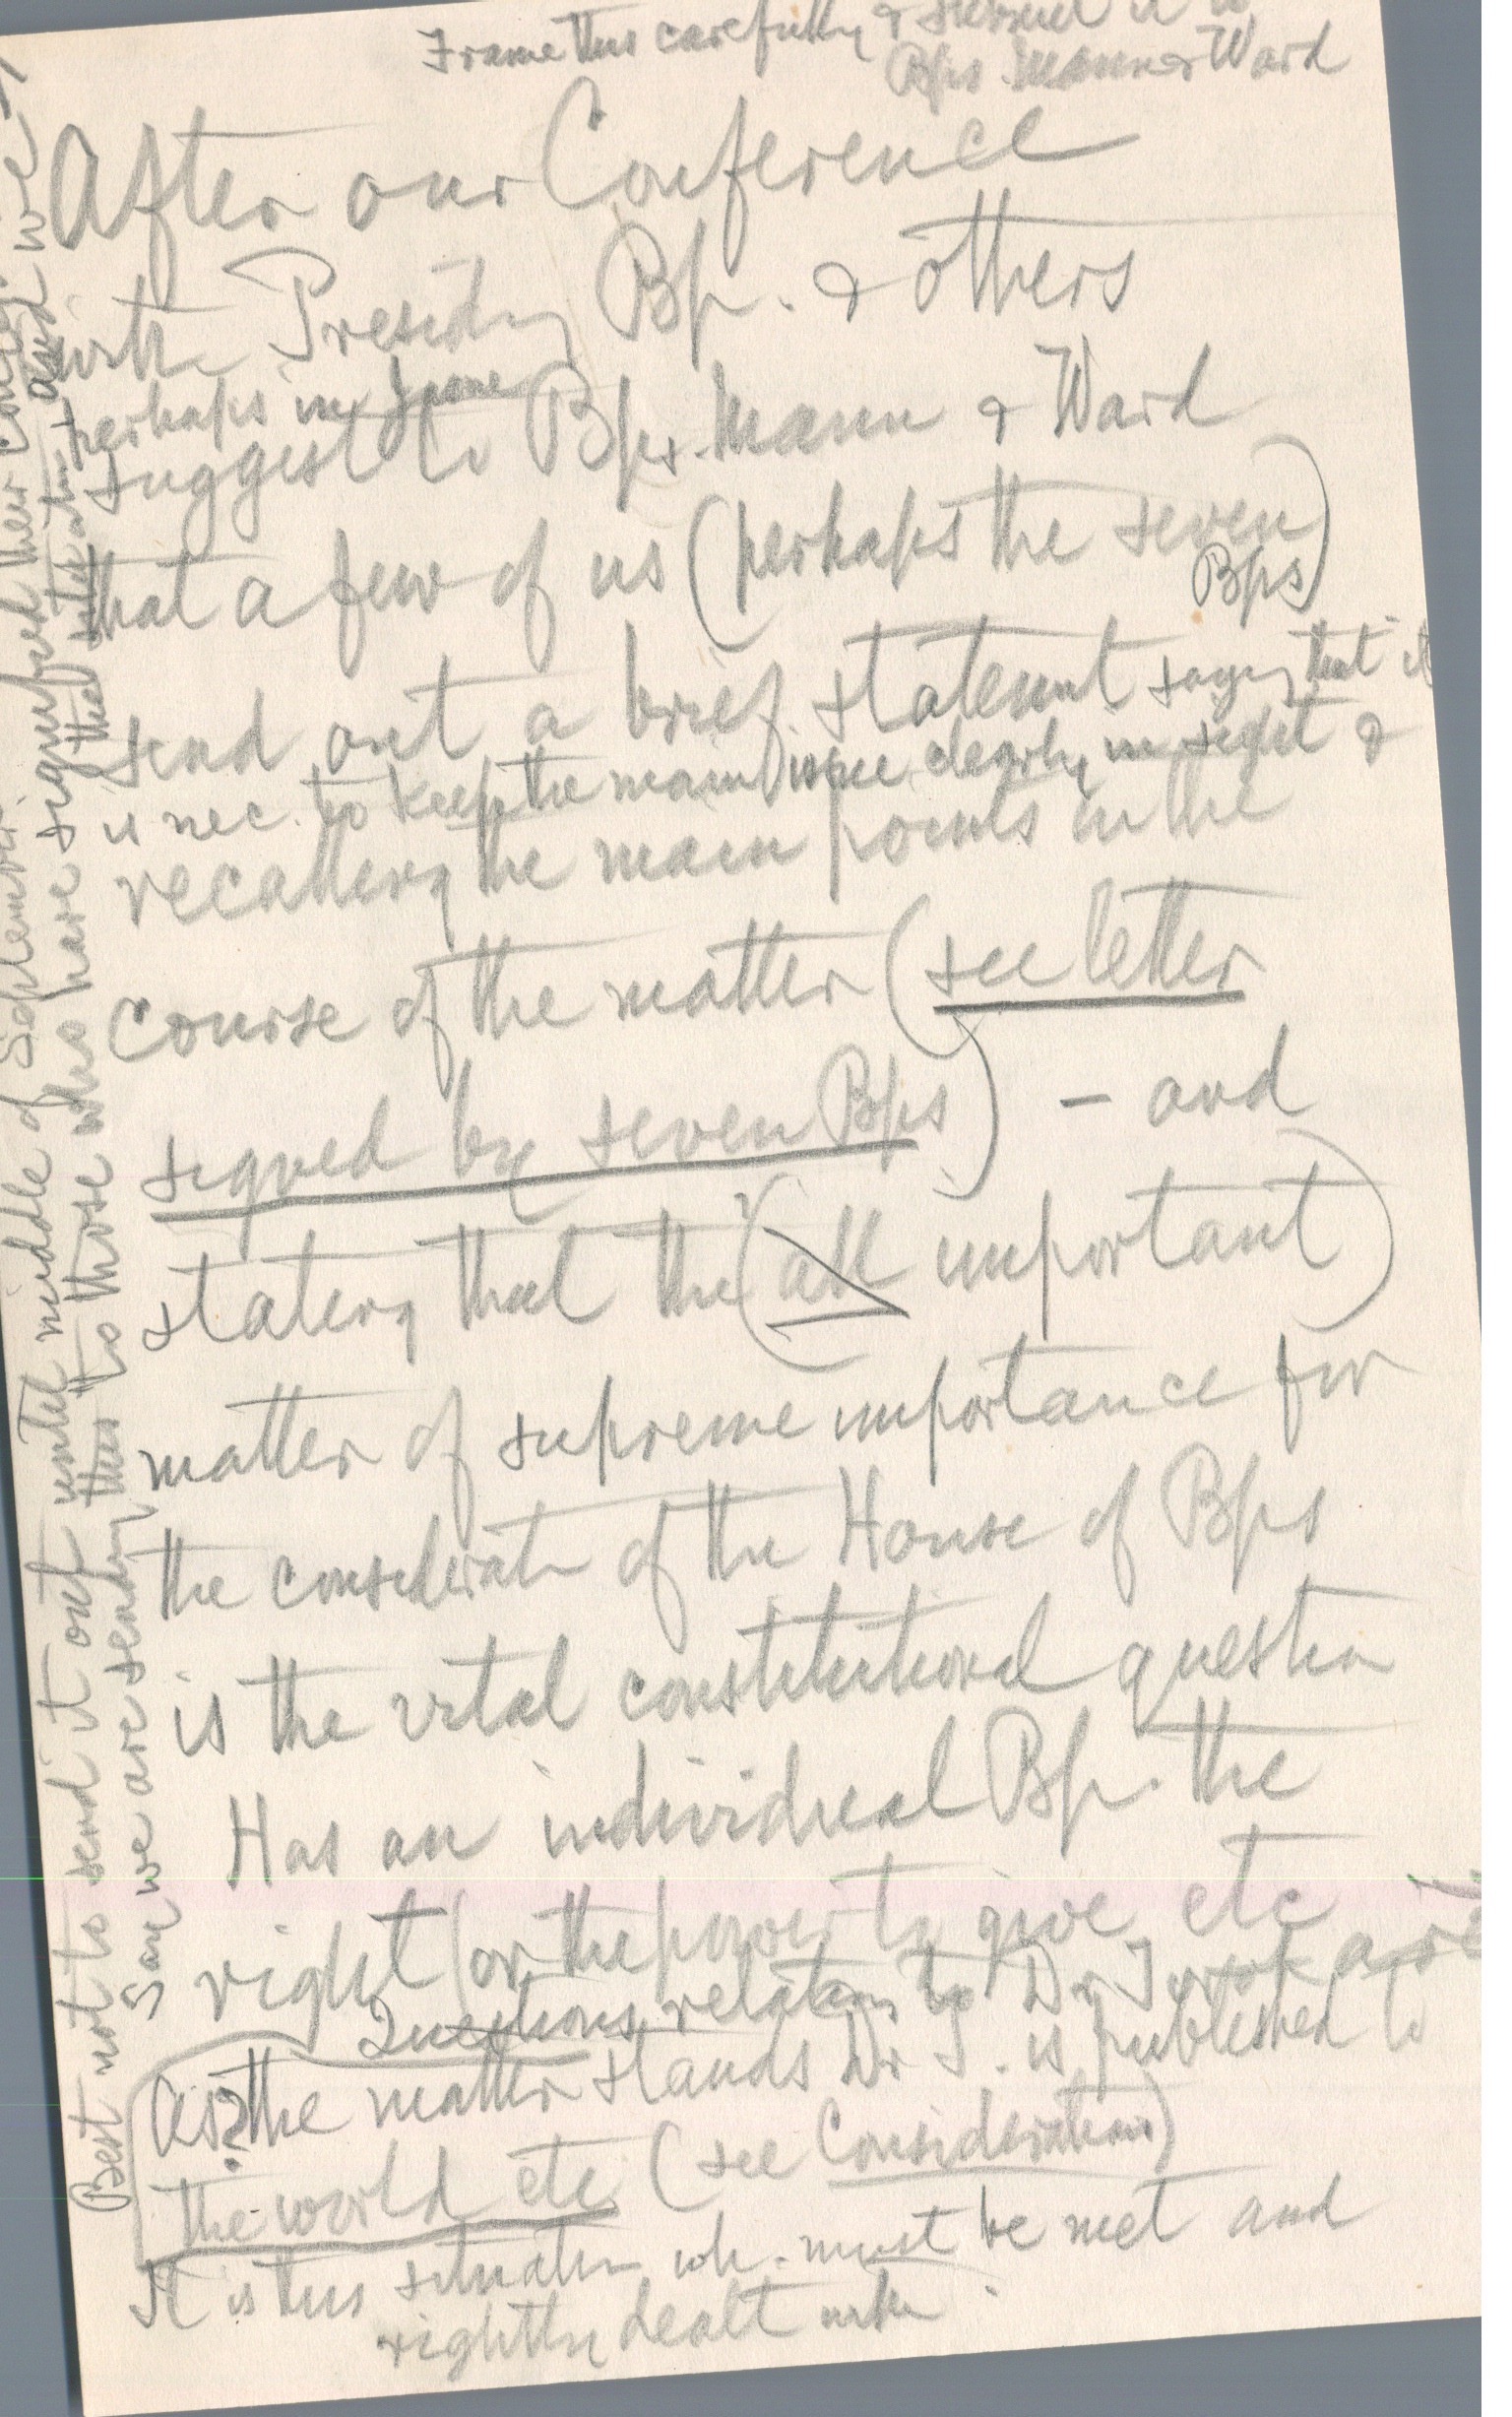 Frame this carefully & submit it to
Bps Mann & Ward
After our Conference
with Presidg Bp. & others
perhaps in June
suggest to Bps. Mann & Ward
that a few of us (perhaps the seven
Bps)
send out a brief statemnt sayg that it
is nec. to keep the main issue clearly in sight &
recalling the main points in the
course of the matter (see letter
signed by seven Bps) – and
stating that the (all important)
matter of supreme importance for
the consideratn of the House of Bps
is the vital constitutional question
Has an individual Bp. the
right (or the power to give etc
Questions relating to Dr T are
As the matter stands Dr T. is published to
?
the world etc (see Considerations)
It is this situatn wh. must be met and
rightly dealt with.
Best not to send it out until middle of September
Say we are sending this to those who have signified their
that and we